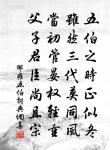 五伯之時正似冬
雖然三代莫同風
當初管晏權輕重
父子君臣尚且宗
邵雍五伯詞典網書